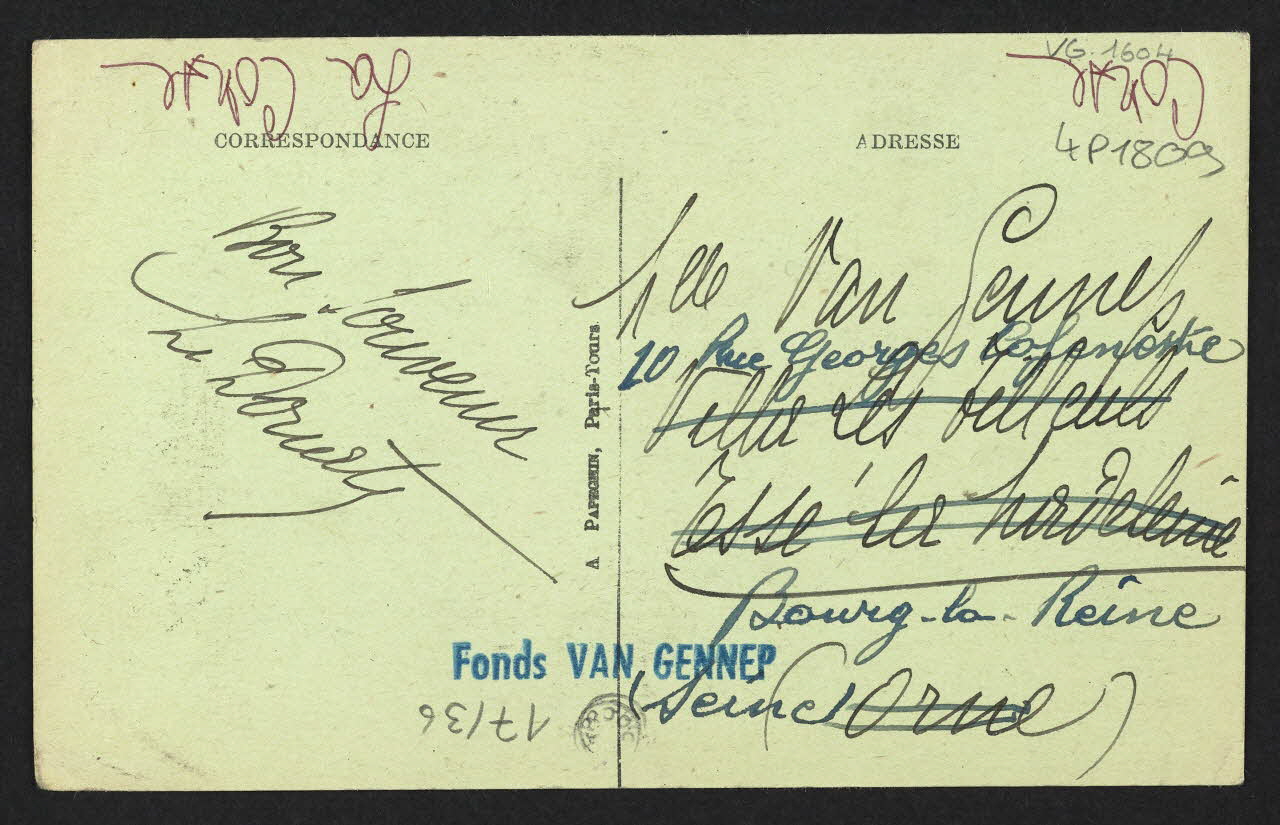 VG. 1604
La Corse
Corse
CORRESPONDANCE
ADRESSE
4P1809
Bon Souvenir
Mlle Van Gennep
10 Rue Georges Lafenestre
Villa Les
Tessé la Madeleine
Bourg-la-Reine
(Seine) (Orne)
A PAPEGHIN, Paris-Tours
Fonds VAN GENNEP
17/36